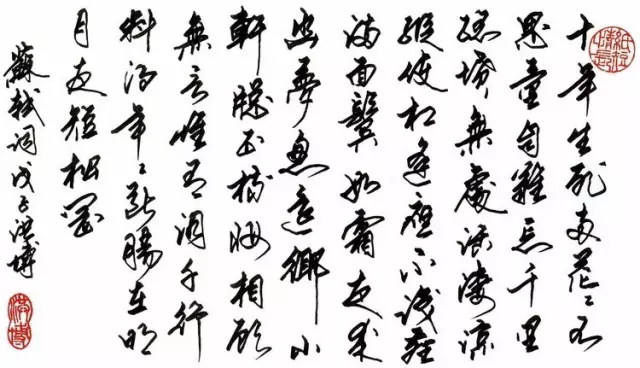 十年生死兩茫〻不
思量自難忘千里
孤墳無處話淒涼
縱使相逢應不識塵
滿面鬢如霜夜來
幽夢忽還鄉小
軒窗正梳妝相顧
無言惟有淚千行
料得年〻斷腸在明
月夜短松岡
蘇軾詞戊子洪博
洪博